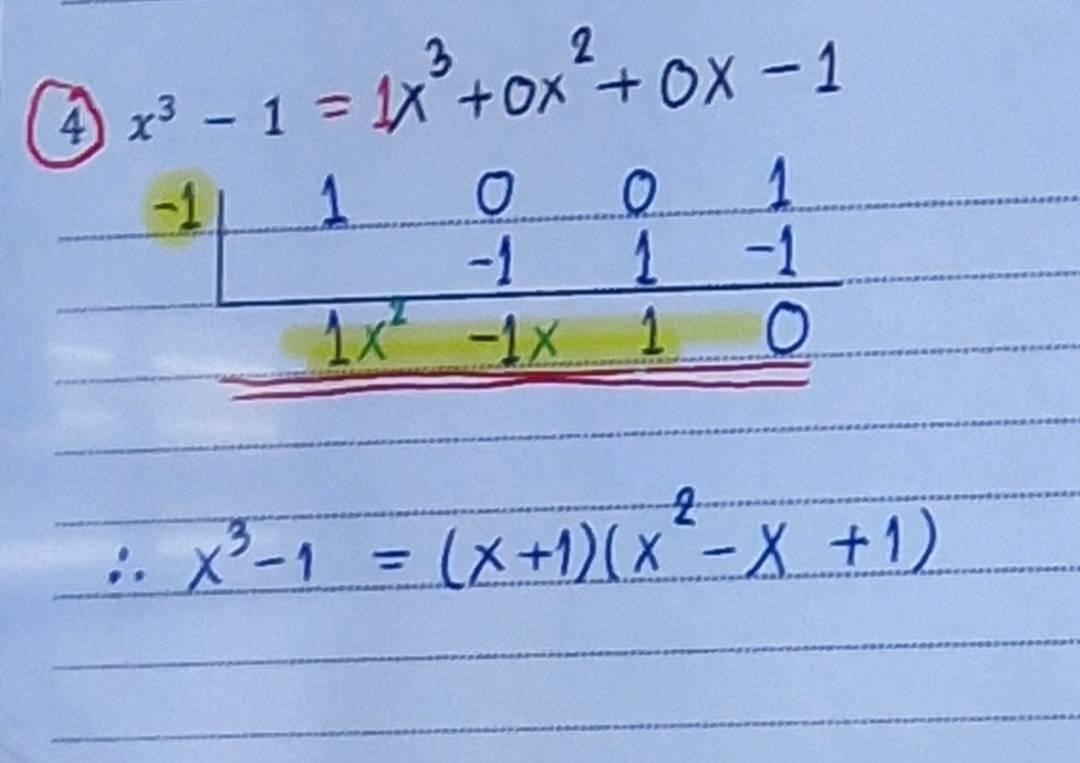 ④ x³ - 1 = 1x³ + 0x² + 0x - 1
-1 1 0 0 1
-1 1 -1
1x² -1x 1 0
∴ x³-1 = (x+1)(x² - x + 1)